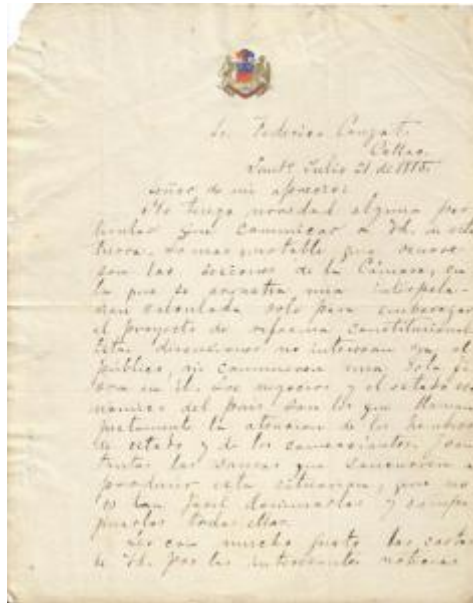 Sr. Federico
Callao.
Santo. Julio 21 de 1885.
Señor de mi aprecio:
No tengo novedad alguna par
ticular que comunicar a Vd. de esta
tierra. Lo mas notable que ocurre
son las sesiones de la Cámara, en
la que se una interpela-
cion calculada solo para embarazar
el proyecto de reforma constitucional
Estas discusiones no interesan en el
público, ni conmueven una sola
Los negocios y el estado eco
nomico del pais son los que llaman
justamente la atencion de los hombres
de estado y de los comerciantes. Son
tantas las causas que concurren a
producir esta situacion, que no
es tan facil dominarlas y
todas ellas.
Leo con mucho gusto las cartas
de Vd. por las interesantes noticias